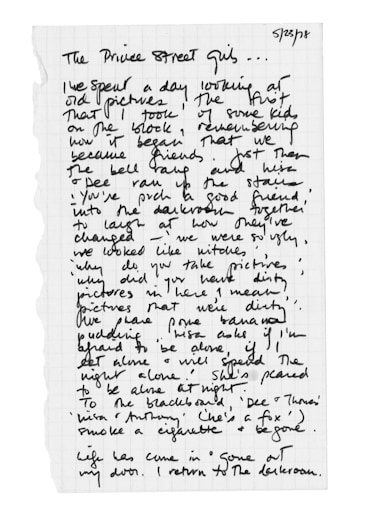 5/23/78
The Prince Street Girls...
I've spent a day looking at
old pictures, the first
that I took, of some kids
on the block, remembering
how it began that we
became friends. Just then
the bell rang and Lisa
+ Dee ran up the stairs.
'You're such a good friend,'
into the darkroom together
to laugh at how they've
changed - 'we were so ugly,
we looked like witches.'
'why do you take pictures,'
'why did you have dirty
pictures in here, I mean,
pictures that were dirty.'
We share some banana
pudding. Lisa asks if I'm
afraid to be alone, if I
eat alone + will spend the
night alone. She's scared
to be alone at night.
To the blackboard, 'Dee + Thomas'
'Lisa + Anthony' ('he's a fox')
smoke a cigarette + begone.
Life has come in + gone out
my door. I return to the darkroom.